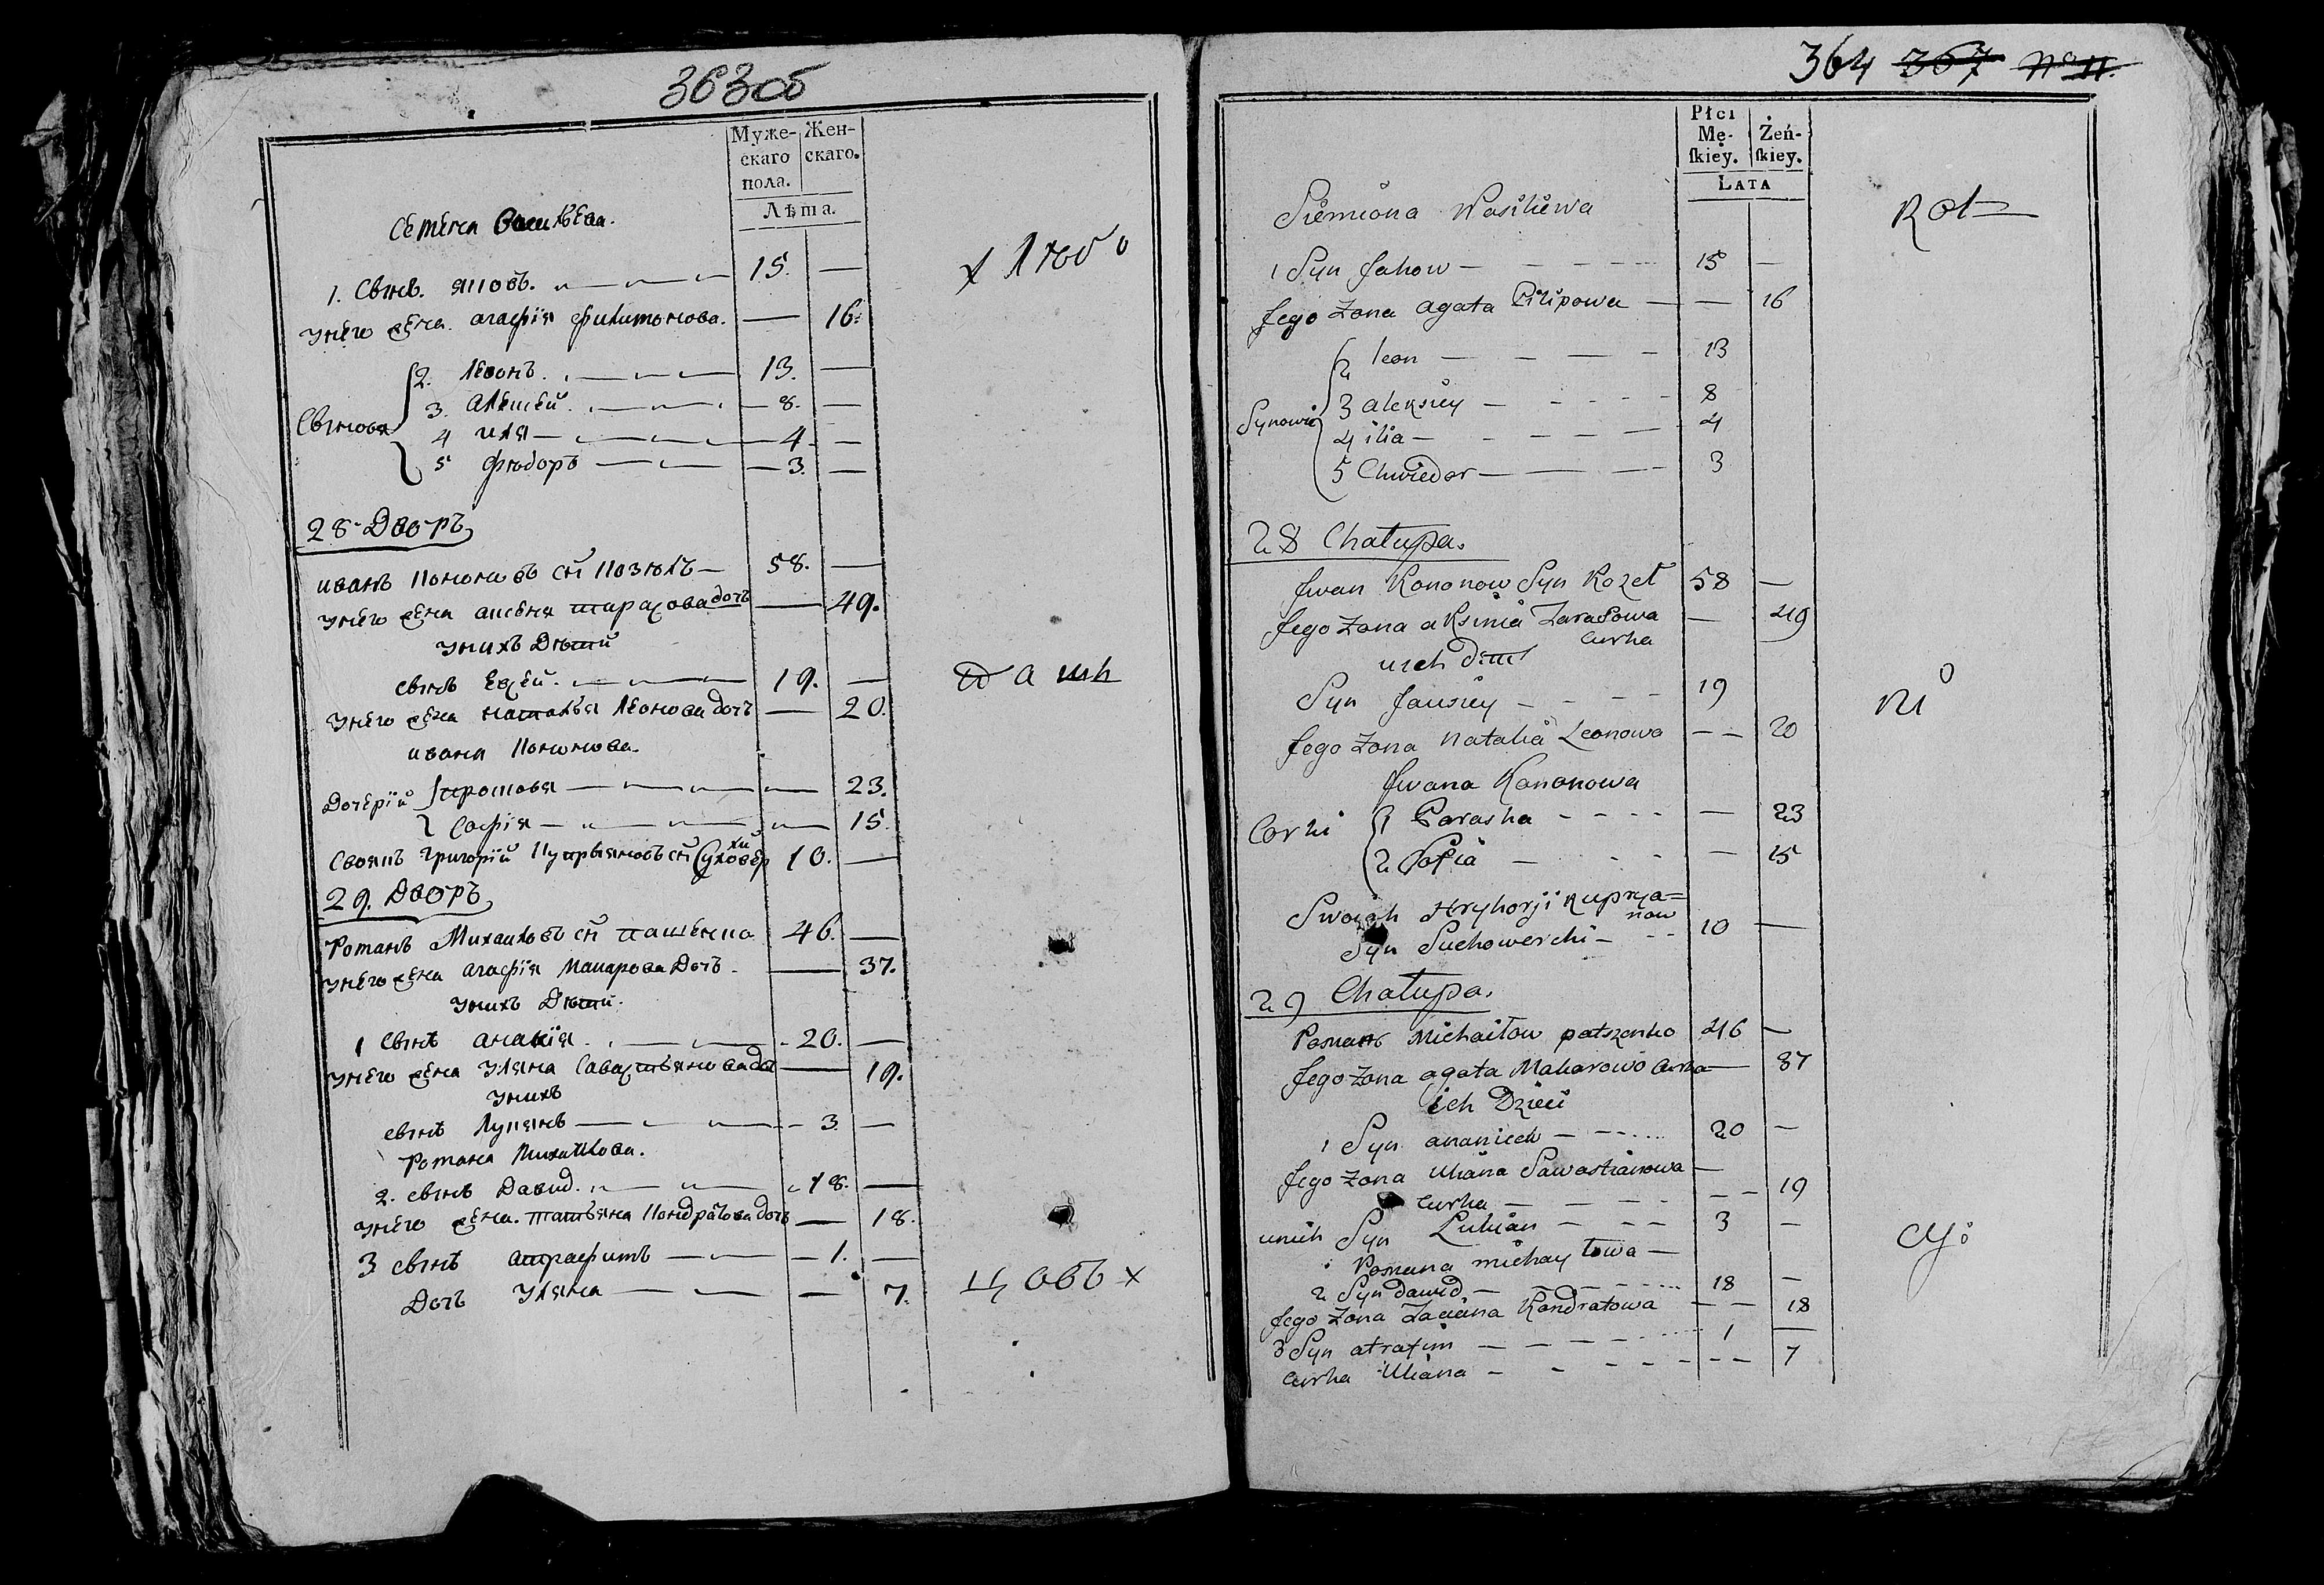 363об
Муже- Жен-
скаго скаго.
пола.
Лѣта.
Семена Васильева.
1. Сынъ. яковъ. 15. —
унего жена. агафія филимонова. — 16.
2. Левонъ. 13. —
3. Алексей. 8. —
Сыновя
4 иля — 4 —
5 фѣдоръ — 3. —
28 Дворъ
иванъ Кононовъ сн Козюлъ — 58. —
унего жена аксеня тарасова дочь — 49.
унихъ Дѣтй
сынъ Евсей. 19. —
унего жена наталья Леонова дочь — 20.
ивана Кононова.
Дочерій 23.
Софія — 15.
Своякъ Григорій Купрьяновъ сн Суховерхи 10. —
29. Дворъ
Романъ Михаиловъ сн пашенко 46. —
унего жена агафія Макарова Дочь — 37.
унихъ Дѣтй.
1 сынъ ананія 20. —
унего жена уляна Савастьянова до — 19.
унихъ
сынъ Лукянъ — 3. —
Романа Михаилова.
2. сынъ Давид. 18. —
унего жена. татьяна Кондратова дочь — 18.
3 сынъ — 1. —
Дочь уляна — 7.
364 367 №11.
Płci
Mę- Żeń-
ſkiey. ſkiey.
LATA
Siemiona Wasiliewa
1 Syn Jakow — 15 —
Jego Zona agata Pilipowa — 16
2 leon — 13
3 alexiey — 8
Synowie
4 ilia — 4
5 Chwiedor — 3
28 Chałupa.
Jwan Kononow Syn Kozeł 58 —
Jego Zona aksinia Tarasowa — 49
Curka
uich
Syn Jausiey — 19
Jego Zona Natalia Leonowa — 20
Jwana Kononowa
Corki 1 Paraska — 23
2 Sofia — 15
Swojak Hryhorji Kuprya=
now
Syn Suchowerchi — 10 —
29 Chałupa.
Roman Michaiłow patszenko 46 —
Jego Zona agata Makarowo Curka — 37
ich Dzieci
1 Syn ananiech — 20 —
Jego Zona Uliana Sawastianowa —
Curka — 19
unich Syn Lukian — 3 —
Romana michayłowa —
2 Syn Dawid — 18 —
Jego Zona Taciana Kondratowa — 18
3 Syn atrafim — 1 —
Curka Uliana — 7